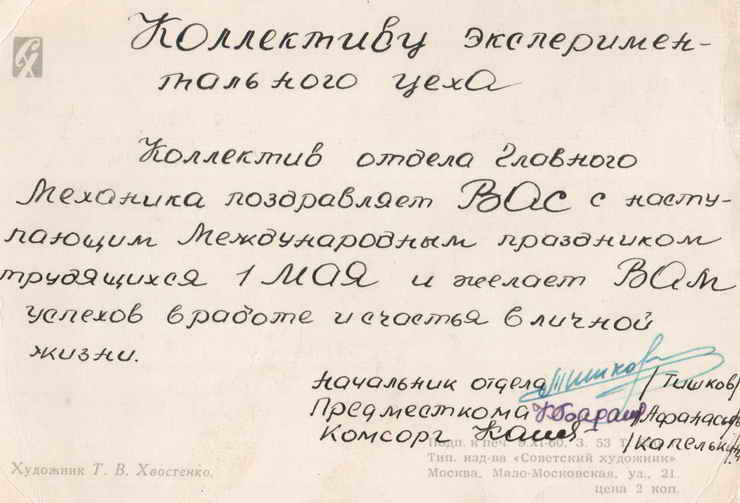 Коллективу эксперимен-
тального цеха
Коллектив отдела Главного
Механика поздравляет ВАС с насту-
пающим Международным праздником
трудящихся 1 МАЯ и желает ВАМ
успехов в работе и счастья в личной
жизни.
Начальник отдела Тишков /Тишков/
Предместкома /Афанасьев
Комсорг /Капелькин
Подп. к печ. 9.XI-60. З. 53 Т.
Тип. изд-ва «Советский художник»
Москва, Мало-Московская, ул., 21.
цена 2 коп.
Художник Т. В. Хвостенко,